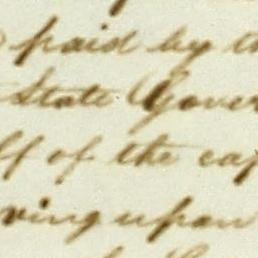 paid by
State Gover
of the cap
ving upon